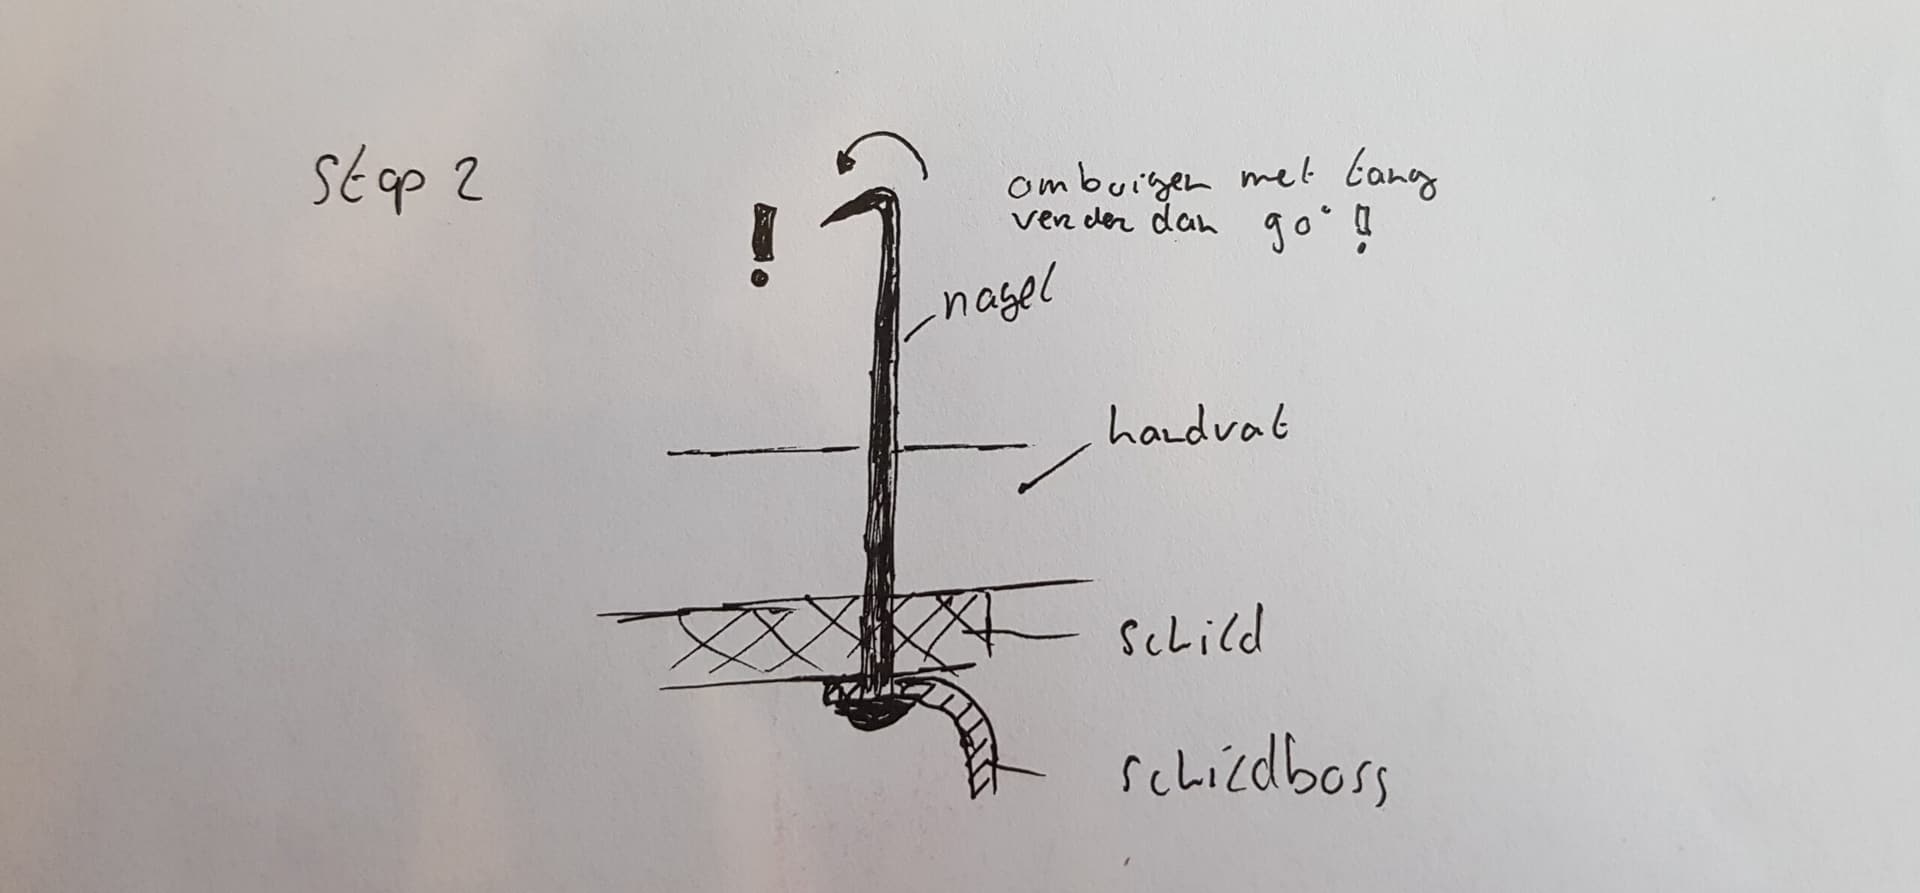 Stap 2
ombuigen met tang
verder dan 90° !!
nagel
!
handvat
schild
schildboss